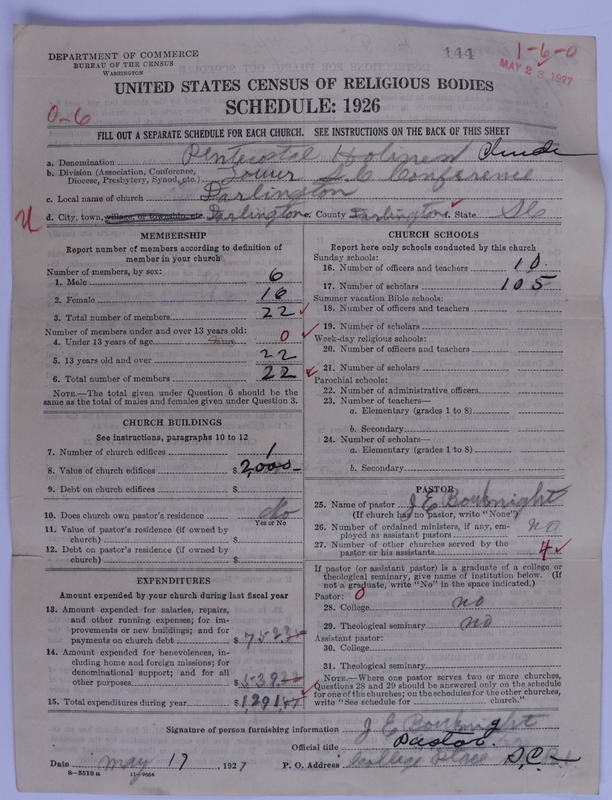 144
1-6-0
MAY 23 1927
DEPARTMENT OF COMMERCE
BUREAU OF THE CENSUS
WASHINGTON
UNITED STATES CENSUS OF RELIGIOUS BODIES
SCHEDULE: 1926
0-6
FILL OUT A SEPARATE SCHEDULE FOR EACH CHURCH. SEE INSTRUCTIONS ON THE BACK OF THIS SHEET
a. Denomination Pentecostal Holiness Church
b. Division (Association, Conference, Diocese, Presbytery, Synod, etc.) Lower S C Conference
c. Local name of church Darlington
d. City, town, village, or township, etc. Darlington County Darlington State SC
MEMBERSHIP
Report number of members according to definition of
member in your church
Number of members, by sex:
1. Male 6
2. Female 16
3. Total number of members 22
Number of members under and over 13 years old:
4. Under 13 years of age 0
5. 13 years old and over 22
6. Total number of members 22
NOTE.—The total given under Question 6 should be the
same as the total of males and females given under Question 3.
CHURCH BUILDINGS
See instructions, paragraphs 10 to 12
7. Number of church edifices 1
8. Value of church edifices $ 2,000
9. Debt on church edifices $
10. Does church own pastor's residence? No
Yes or No
11. Value of pastor's residence (if owned by
church) $
12. Debt on pastor's residence (if owned by
church) $
EXPENDITURES
Amount expended by your church during last fiscal year
13. Amount expended for salaries, repairs,
and other running expenses; for im-
provements or new buildings; and for
payments on church debt $
14. Amount expended for benevolences, in-
cluding home and foreign missions; for
denominational support; and for all
other purposes $
15. Total expenditures during year $
CHURCH SCHOOLS
Report here only schools conducted by this church
Sunday schools:
16. Number of officers and teachers 10
17. Number of scholars 105
Summer vacation Bible schools:
18. Number of officers and teachers
19. Number of scholars
Week-day religious schools:
20. Number of officers and teachers
21. Number of scholars
Parochial schools:
22. Number of administrative officers
23. Number of teachers—
a. Elementary (grades 1 to 8)
b. Secondary
24. Number of scholars—
a. Elementary (grades 1 to 8)
b. Secondary
PASTOR
25. Name of pastor J E Bouknight
(If church has no pastor, write "None")
26. Number of ordained ministers, if any, em-
ployed as assistant pastors no
27. Number of other churches served by the
pastor or his assistants 4
If pastor (or assistant pastor) is a graduate of a college or
theological seminary, give name of institution below. (If
not a graduate, write "No" in the space indicated.)
Pastor: 0
28. College no
29. Theological seminary no
Assistant pastor:
30. College
31. Theological seminary
NOTE.—Where one pastor serves two or more churches,
Questions 28 and 29 should be answered only on the schedule
for one of the churches; on the schedules for the other churches,
write "See schedule for church."
Signature of person furnishing information J E Bouknight
Official title Pastor
Date May 17, 1927 P. O. Address College Place S.C.
8-5518a 11-9664